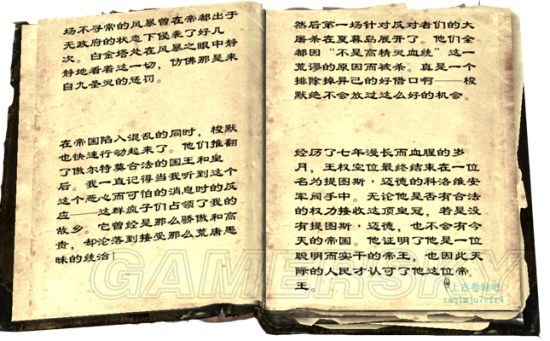 场不寻常的风暴曾在帝都出于
无政府的状态下侵袭了好几
次。白金塔处在风暴之眼中静
静地看着这一切，仿佛那是来
自九圣灵的惩罚。
在帝国陷入混乱的同时，梭默
也快速行动起来了。他们推翻
了傲尔特莫合法的国王和皇
后。我一直记得当我听到这个
这个恶心而可怕的消息时的反
应——这群疯子们占领了我的
故乡。它曾经是那么骄傲和高
贵，却沦落到接受那么荒唐愚
昧的统治！
然后第一场针对反对者们的大
屠杀在夏暮岛展开了。他们全
都因“不是高精灵血统”这一
荒谬的原因而被杀。真是一个
排除掉异己的好借口啊——梭
默绝不会放过这么好的机会。
经历了七年漫长而血腥的岁
月，王权空位最终结束在一位
名为提图斯·迈德的科洛维安
军阀手中。无论他是否有合法
的权力接收这顶皇冠，若是没
有提图斯·迈德，也不会有今
天的帝国。他证明了他是一位
聪明而实干的帝王，也因此天
际的人民才认可了他这位帝
王。
上古卷轴吧
zaq1mju7vfr4
GAMERSKY